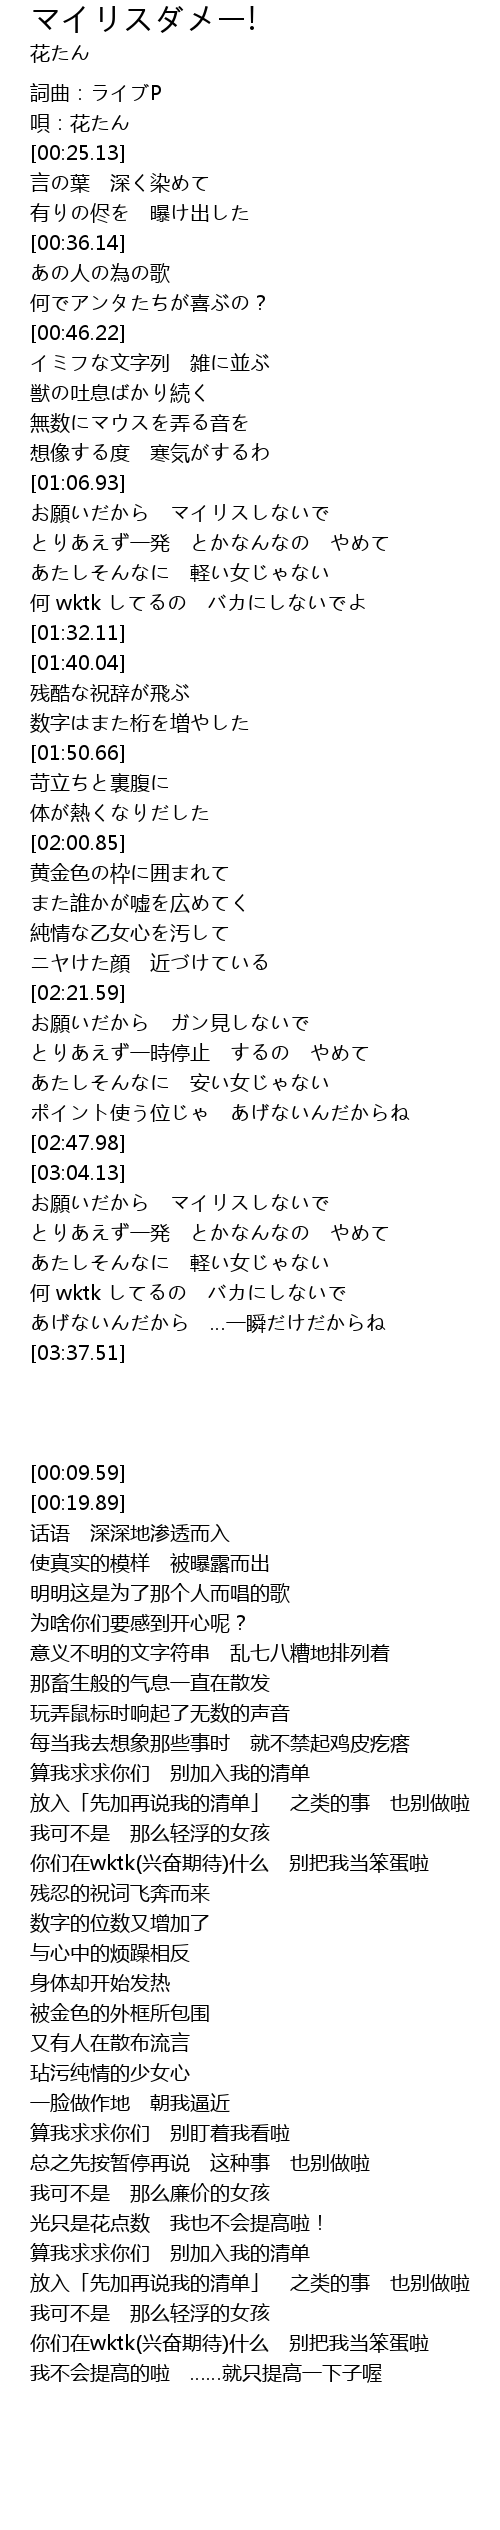 マイリスダメー!
花たん
詞曲：ライブP
唄：花たん
[00:25.13]
言の葉　深く染めて
有りの侭を　曝け出した
[00:36.14]
あの人の為の歌
何でアンタたちが喜ぶの？
[00:46.22]
イミフな文字列　雑に並ぶ
獣の吐息ばかり続く
無数にマウスを弄る音を
想像する度　寒気がするわ
[01:06.93]
お願いだから　マイリスしないで
とりあえず一発　とかなんなの　やめて
あたしそんなに　軽い女じゃない
何 wktk してるの　バカにしないでよ
[01:32.11]
[01:40.04]
残酷な祝辞が飛ぶ
数字はまた桁を増やした
[01:50.66]
苛立ちと裏腹に
体が熱くなりだした
[02:00.85]
黄金色の枠に囲まれて
また誰かが嘘を広めてく
純情な乙女心を汚して
ニヤけた顔　近づけている
[02:21.59]
お願いだから　ガン見しないで
とりあえず一時停止　するの　やめて
あたしそんなに　安い女じゃない
ポイント使う位じゃ　あげないんだからね
[02:47.98]
[03:04.13]
お願いだから　マイリスしないで
とりあえず一発　とかなんなの　やめて
あたしそんなに　軽い女じゃない
何 wktk してるの　バカにしないで
あげないんだから　...一瞬だけだからね
[03:37.51]
[00:09.59]
[00:19.89]
话语　深深地渗透而入
使真实的模样　被曝露而出
明明这是为了那个人而唱的歌
为啥你们要感到开心呢？
意义不明的文字符串　乱七八糟地排列着
那畜生般的气息一直在散发
玩弄鼠标时响起了无数的声音
每当我去想象那些事时　就不禁起鸡皮疙瘩
算我求求你们　别加入我的清单
放入「先加再说我的清单」　之类的事　也别做啦
我可不是　那么轻浮的女孩
你们在wktk(兴奋期待)什么　别把我当笨蛋啦
残忍的祝词飞奔而来
数字的位数又增加了
与心中的烦躁相反
身体却开始发热
被金色的外框所包围
又有人在散布流言
玷污纯情的少女心
一脸做作地　朝我逼近
算我求求你们　别盯着我看啦
总之先按暂停再说　这种事　也别做啦
我可不是　那么廉价的女孩
光只是花点数　我也不会提高啦！
算我求求你们　别加入我的清单
放入「先加再说我的清单」　之类的事　也别做啦
我可不是　那么轻浮的女孩
你们在wktk(兴奋期待)什么　别把我当笨蛋啦
我不会提高的啦　……就只提高一下子喔